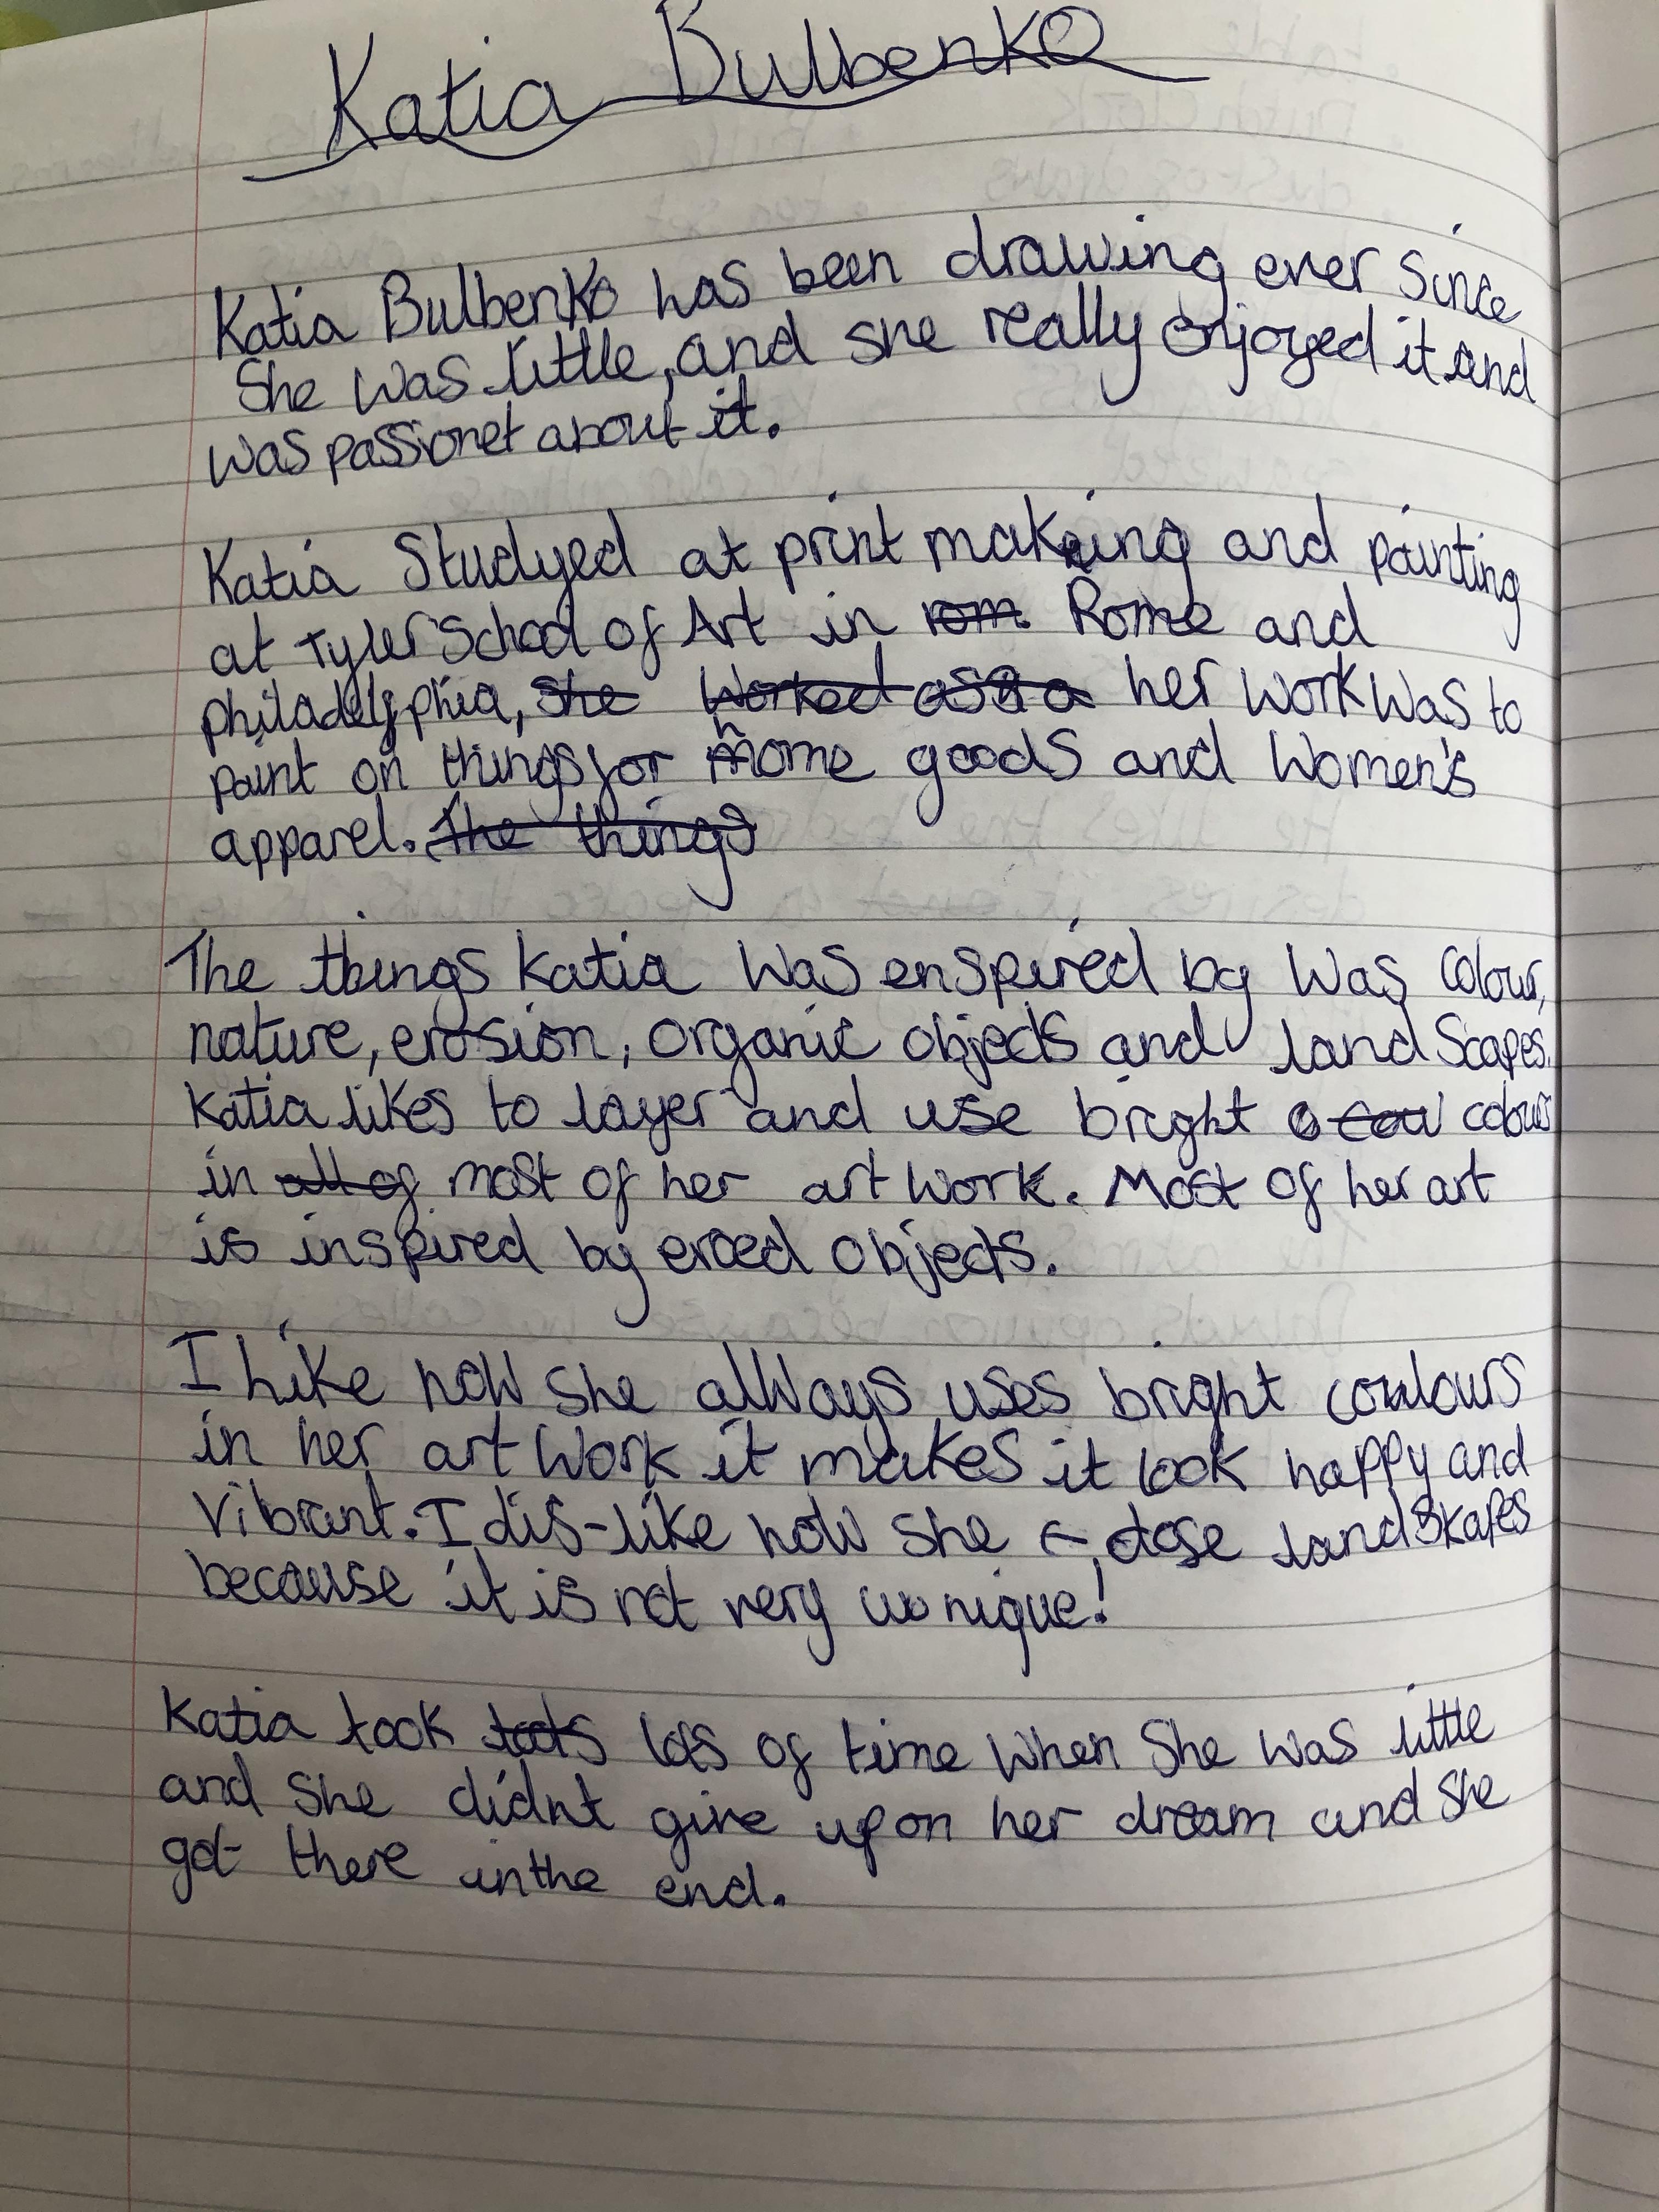 Katia Bulbenko
Katia Bulbenko has been drawing ever since
She was little, and she really enjoyed it and
was passionet about it.
Katia Studyed at print making and painting
at Tyler School of Art in rom. Rome and
philadelyphia, she worked as a her work was to
paint on things for home goods and Women's
apparel. The things
The things Katia was enspired by was colour,
nature, erosion, organic objects and land Scapes.
Katia likes to layer and use bright colour
in all of most of her art work. Most of her art
is inspired by eroed objects.
I like how she allways uses bright coulours
in her art work it makes it look happy and
vibrant. I dis-like how she dose landskapes
because it is not very uonique!
Katia took loots lots of time when She was little
and she didn't give up on her dream and she
got there in the end.